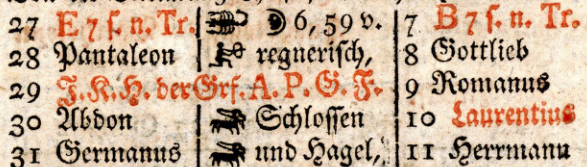 27 E 7 ſ. n. Tr. ☽ 6, 59 v. 7 B 7 ſ. n. Tr.
28 Pantaleon regneriſch, 8 Gottlieb
29 J. K. H. der Grf. A. P. G. F. 9 Romanus
30 Abdon Schloſſen 10 Laurentius
31 Germanus und Hagel, 11 Herrmann